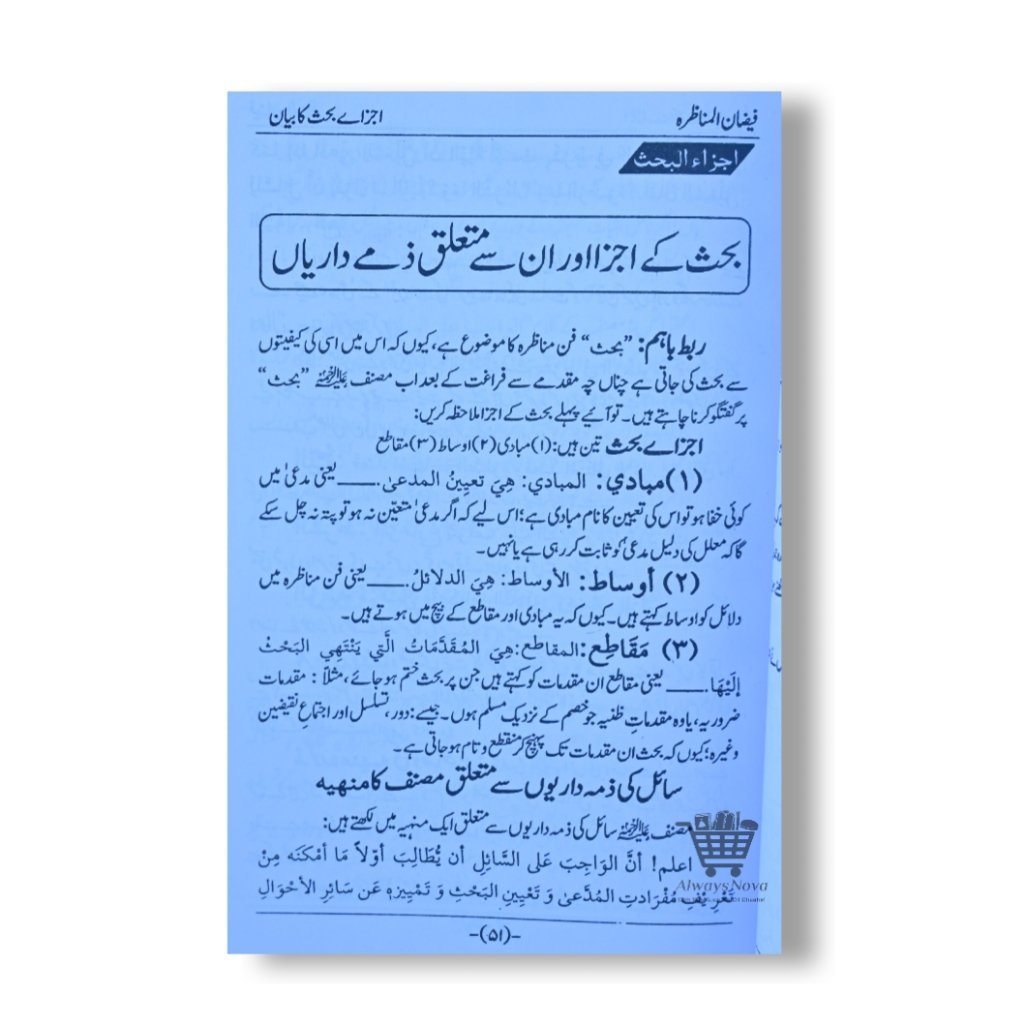 فیضان المناظرہ
اجزاے بحث کا بیان
اجزاء البحث
بحث کے اجزا اور ان سے متعلق ذمے داریاں
ربط باہم: ”بحث“ فن مناظرہ کا موضوع ہے، کیوں کہ اس میں اسی کی کیفیتوں
سے بحث کی جاتی ہے چناں چہ مقدمے سے فراغت کے بعد اب مصنف علیہ الرحمہ ”بحث“
پر گفتگو کرنا چاہتے ہیں۔ تو آئیے پہلے بحث کے اجزا ملاحظہ کریں:
اجزاے بحث تین ہیں: (۱) مبادی (۲) اوساط (۳) مقاطع
(۱) مبادي: المبادي: هِيَ تعيينُ المدعىٰ.___ یعنی مدعیٰ میں
کوئی خفا ہو تو اس کی تعیین کا نام مبادی ہے؛ اس لیے کہ اگر مدعیٰ متعیّن نہ ہو تو پتہ نہ چل سکے
گا کہ معلل کی دلیل مدعیٰ کو ثابت کر رہی ہے یا نہیں۔
(۲) أوساط: الأوساط: هِيَ الدلائلُ.___ یعنی فن مناظرہ میں
دلائل کو اوساط کہتے ہیں۔ کیوں کہ یہ مبادی اور مقاطع کے بیچ میں ہوتے ہیں۔
(۳) مَقَاطِع: المقاطع: هِيَ المُقَدَّمَاتُ الَّتِي يَنْتَهِي البَحْثُ
إِلَيْهَا.___ یعنی مقاطع ان مقدمات کو کہتے ہیں جن پر بحث ختم ہو جائے، مثلاً: مقدمات
ضروریہ، یا وہ مقدماتِ ظنیہ جو خصم کے نزدیک مسلم ہوں۔ جیسے: دور، تسلسل اور اجتماعِ نقیضین
وغیرہ؛ کیوں کہ بحث ان مقدمات تک پہنچ کر منقطع و تام ہو جاتی ہے۔
سائل کی ذمہ داریوں سے متعلق مصنف کا منهیه
مصنف علیہ الرحمہ سائل کی ذمہ داریوں سے متعلق ایک منہیہ میں لکھتے ہیں:
اعلم! أنَّ الوَاجِبَ عَلَى السَّائِلِ أن يُّطَالِبَ أوّلاً مَا أمْكَنَه مِنْ
تَعْرِيْفِ مُفْرَادتِ المُدَّعىٰ وَ تَعْيِينِ البَحْثِ وَ تَمْيِيزِهٖ عَن سَائِرِ الأحْوَالِ
AlwaysNova
-(۵۱)-